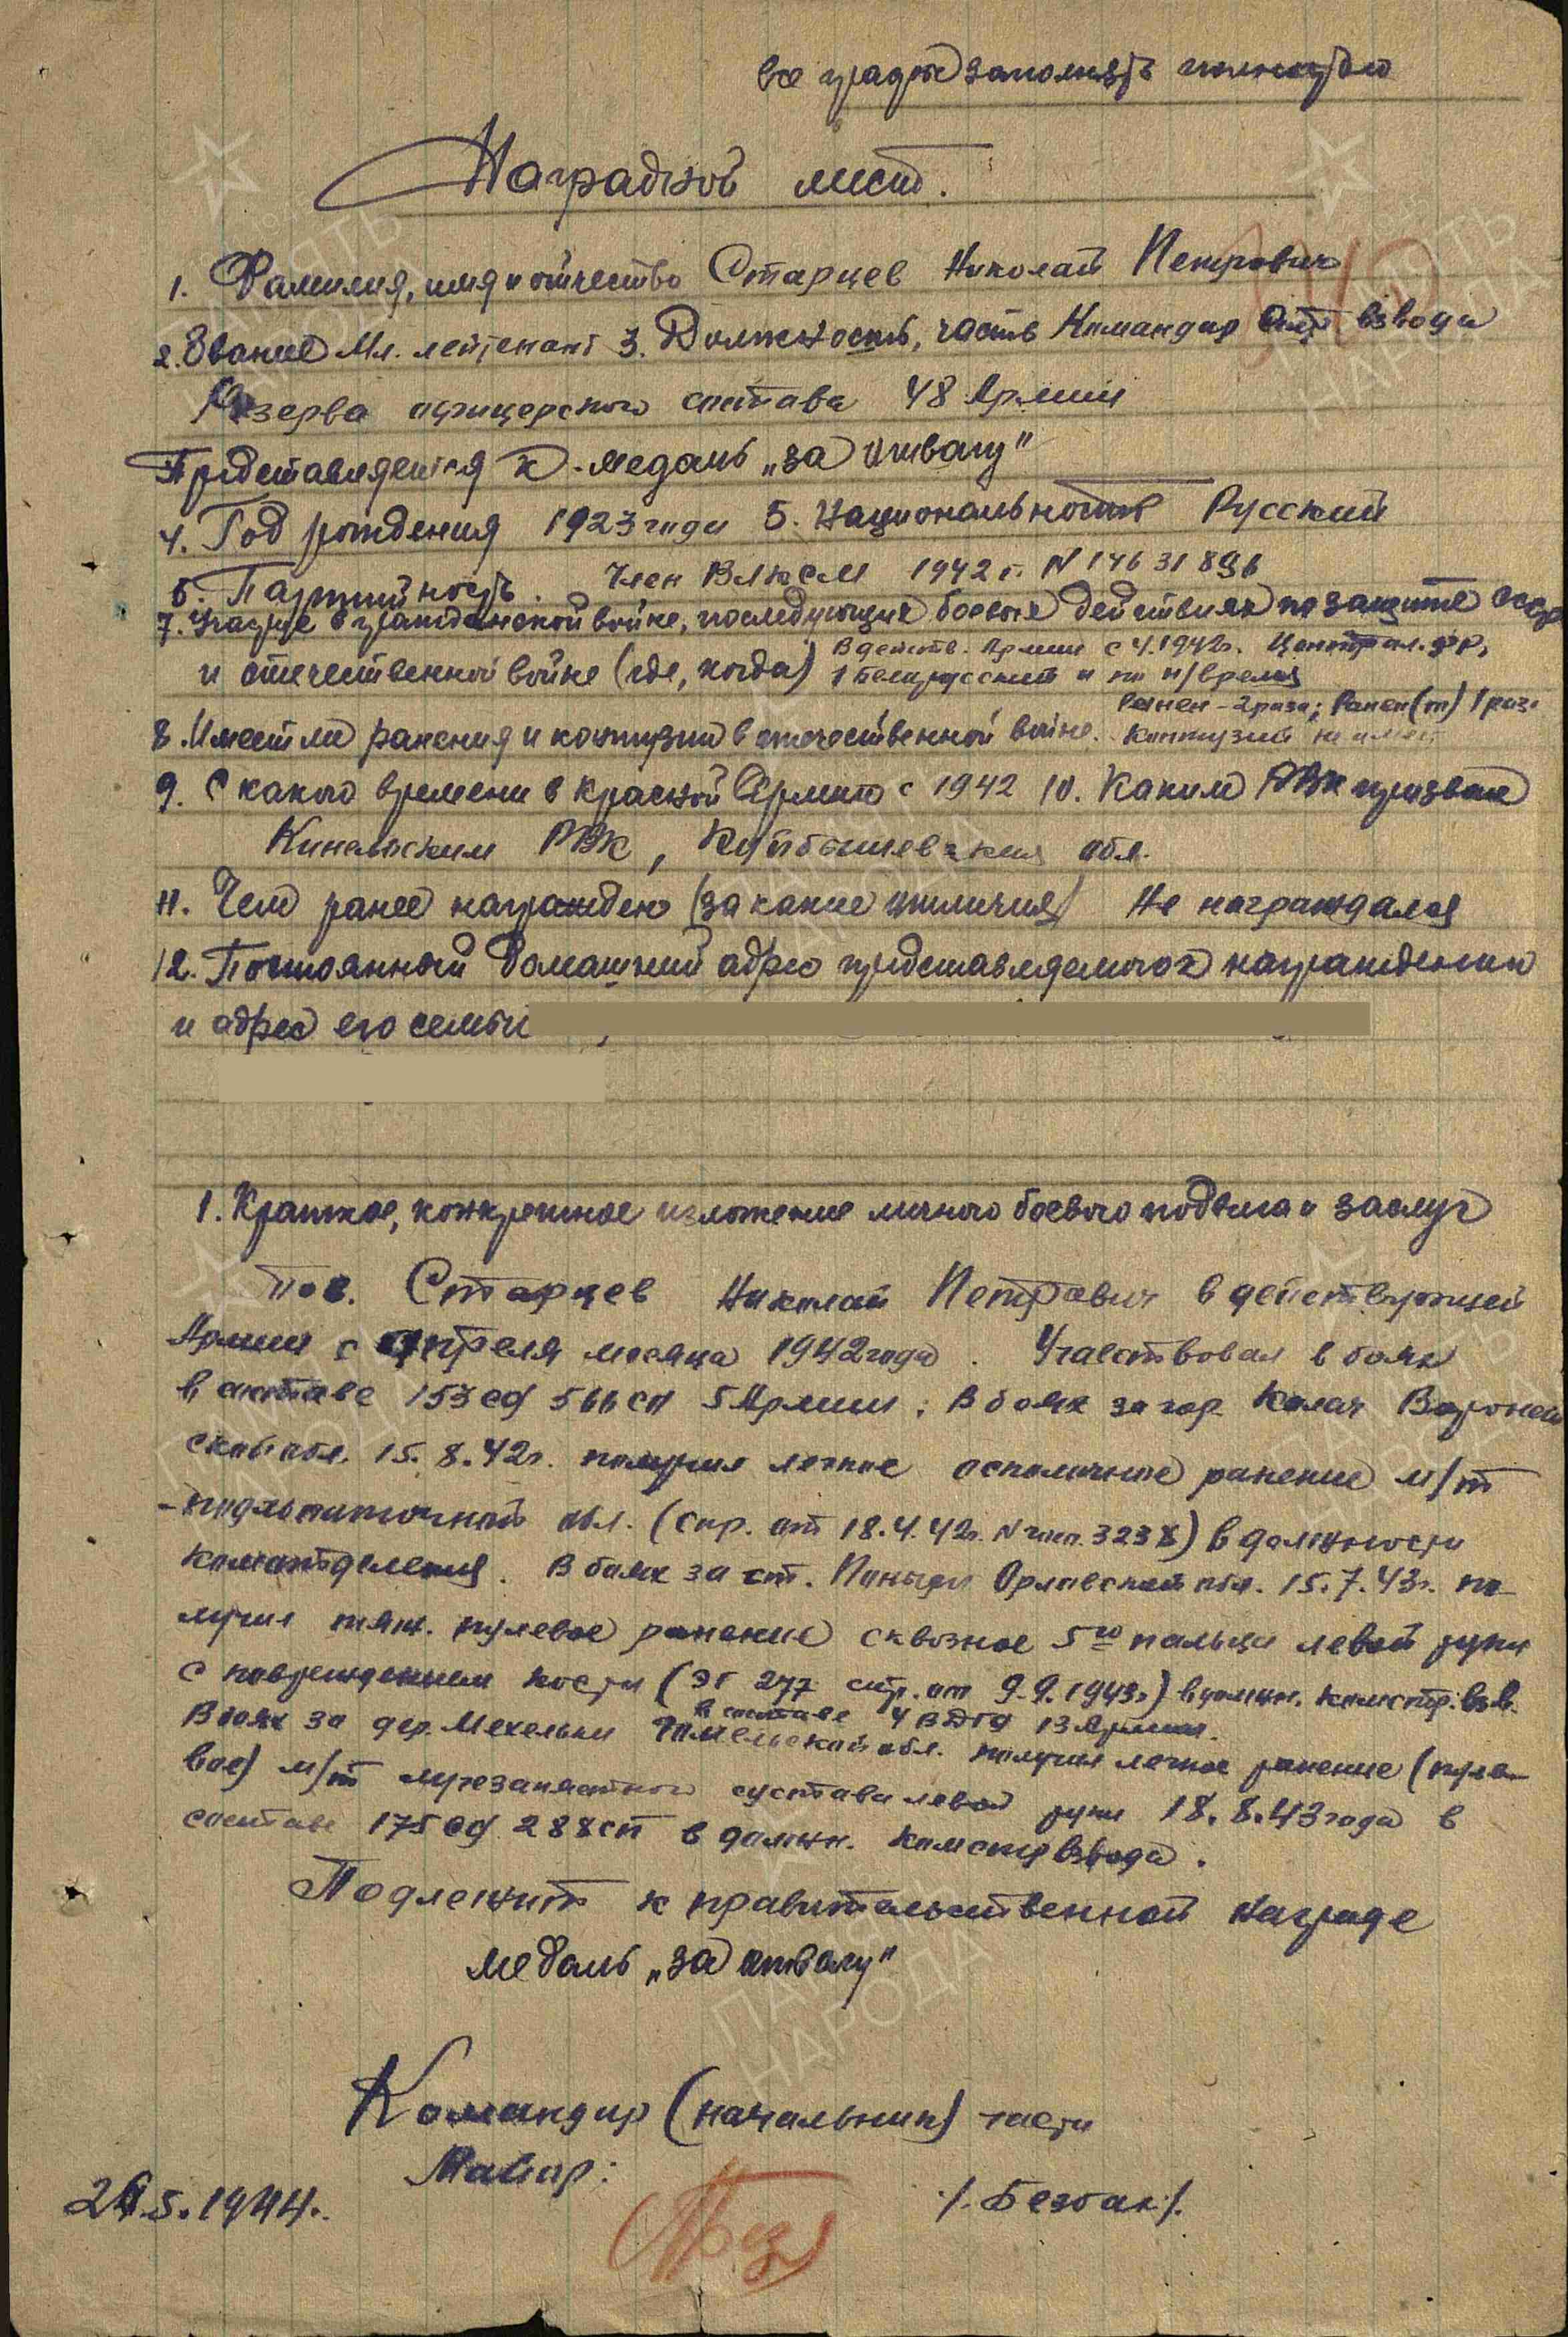 все графы заполнять полностью
Наградной лист.
1. Фамилия, имя и отчество Старцев Николай Петрович
2. Звание Мл. лейтенант 3. Должность, часть Командир взвода
Резерва офицерского состава 48 Армии
Представляется к - медаль „за отвагу"
4. Год рождения 1923 года 5. Национальность Русский
6. Партийность. Член ВЛКСМ 1942 г. N 14631896
7. Участие в гражданской войне, последующих боевых действиях по защите СССР
и отечественной войне (где, когда) В действ. Армии с 4.1942г. Централ. фр,
1 Белорусский и по н/время
Ранен - 2 раза; Ранен (т) 1 раз.
8. Имеет ли ранения и контузии в отечественной войне. Контузий не имеет
9. С какого времени в красной Армии с 1942 10. Каким РВК призван
Кинельским РВК, Куйбышевская обл.
11. Чем ранее награжден (за какие отличия) Не награждался
12. Постоянный домашний адрес представляемого к награждению
и адрес его семьи
1. Краткое, конкретное изложение личного боевого подвига и заслуг
Тов. Старцев Николай Петрович в действующей
Армии с апреля месяца 1942 года. Участвовал в боях
в составе 153 сд 566 сп 5 Армии. В боях за гор. Калач Воронеж
ской обл. 15.8.42г. получил легкое осколочное ранение м/т
- подлопаточной обл. (спр. от 18.4.42г. N госп. 3238) в должности
командира отделения. В боях за ст. Поныри Орловской обл. 15.7.43г. по-
лучил тяж. пулевое ранение сквозное 5го пальца левой руки
с повреждением кости (ЭГ 277 спр. от 9.9.1943г.) в должн. ком стр. взв.
в составе 4 ВДГД 13 Армии.
В боях за дер. Мехельки Гомельской обл. получил легкое ранение (пуле-
вое) м/т лучезапястного сустава левой руки 18.8.43 года в
составе 175 сд 288 сп в должн. ком стр взвода.
Подлежит к правительственной награде
медаль „за отвагу"
Командир (начальник) части
Майор:
26.5.1944. /. Безбак /.
ПАМЯТЬ НАРОДА